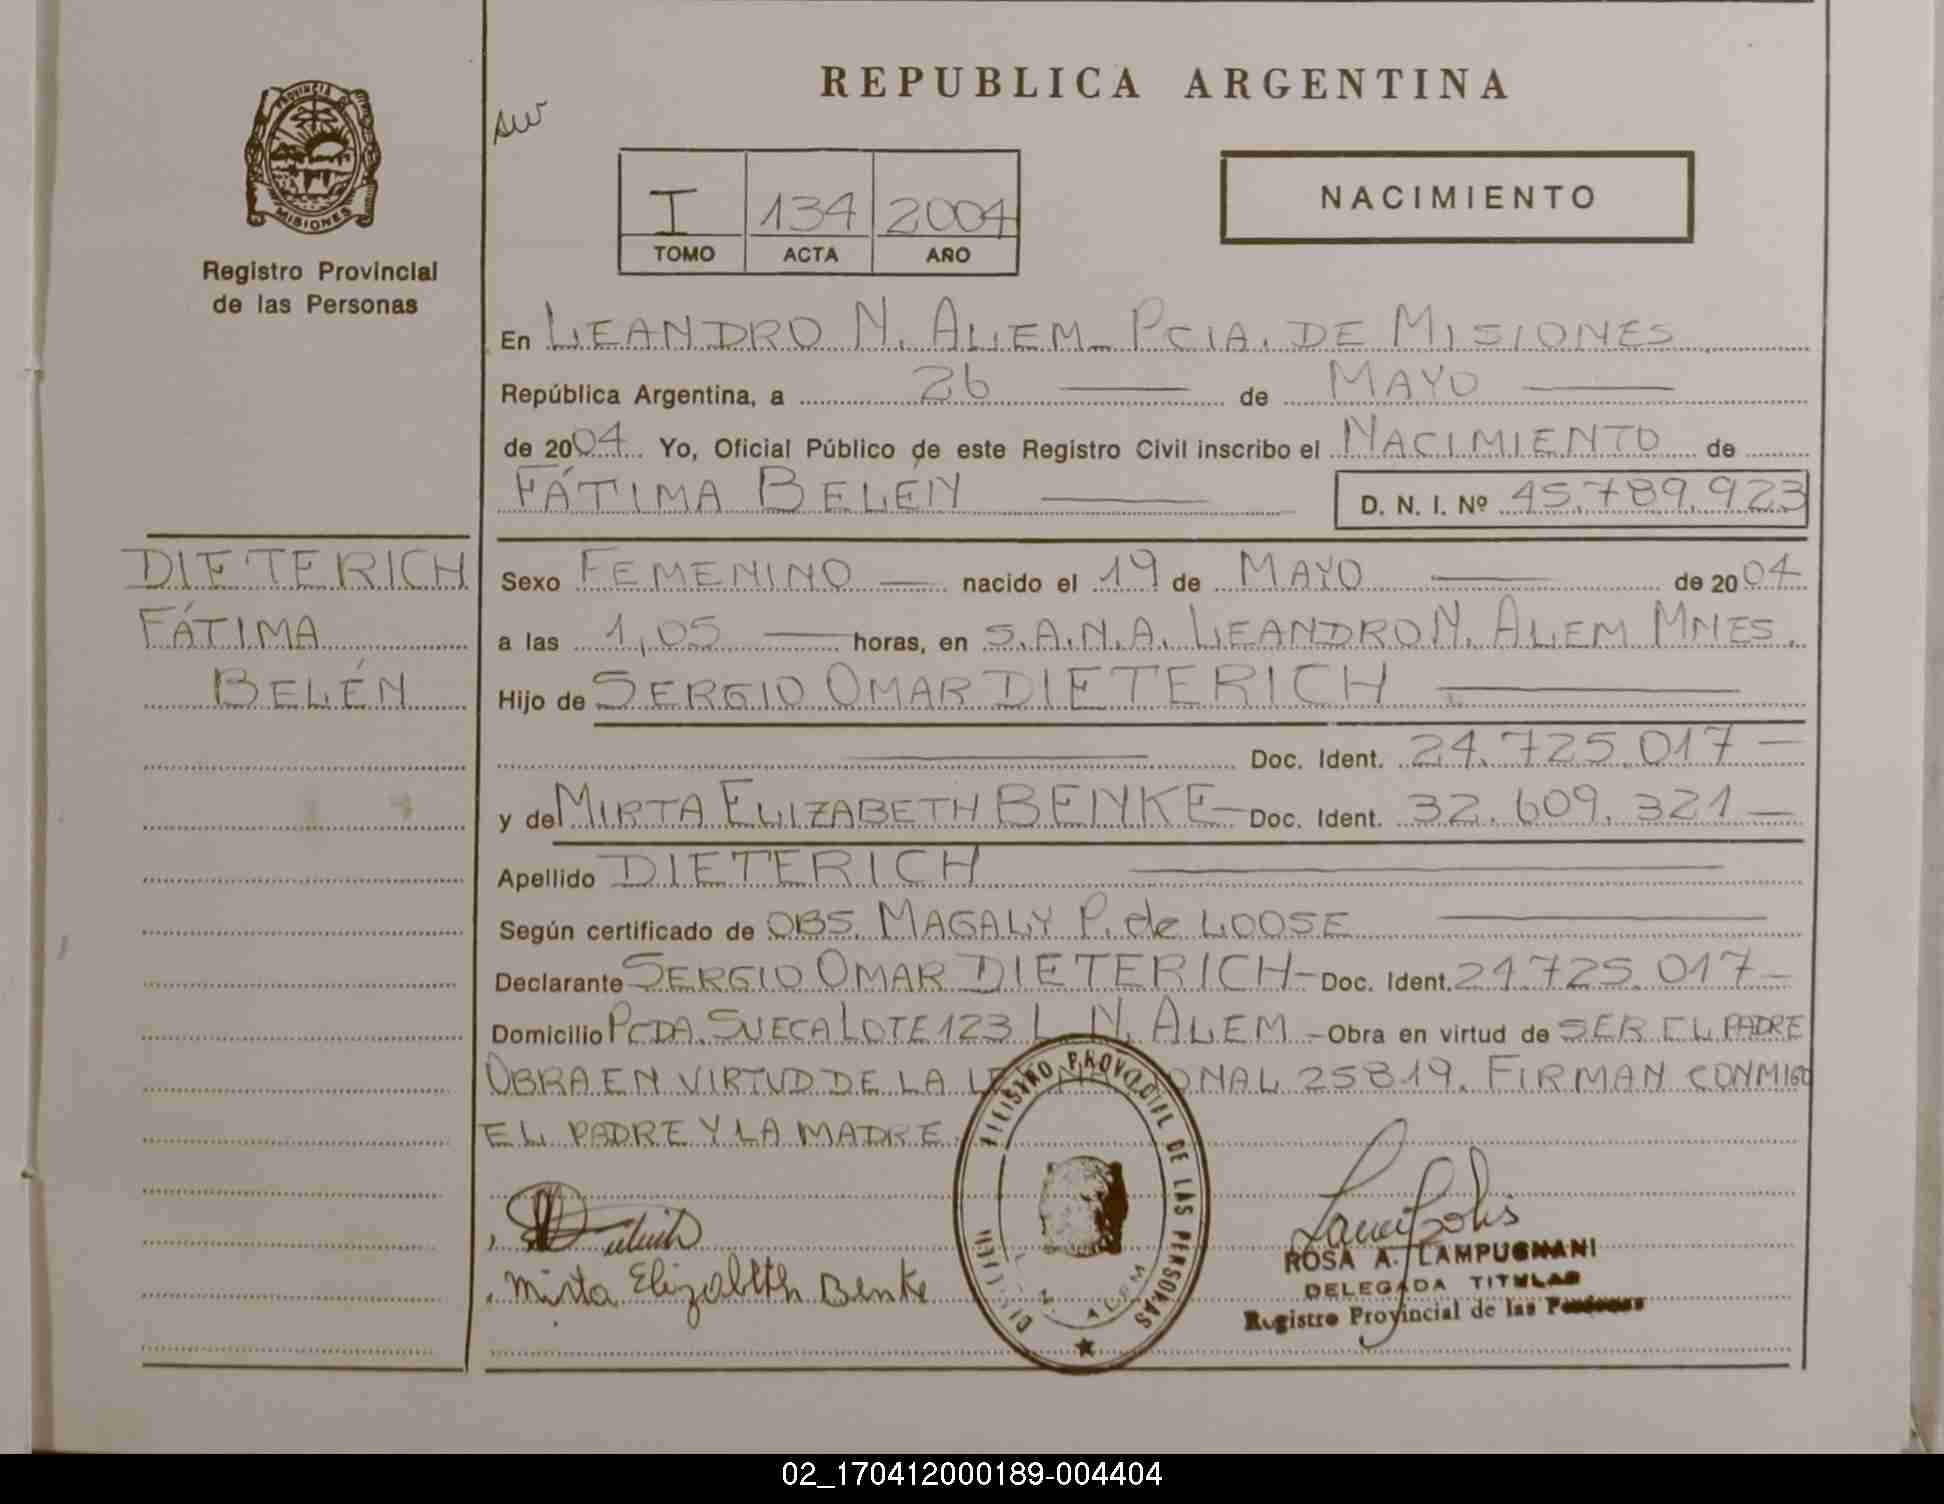 REPUBLICA ARGENTINA
PROVINCIA DE
MISIONES
Registro Provincial
de las Personas
I 134 2004
TOMO ACTA AÑO
NACIMIENTO
En LEANDRO N. ALEM - PCIA. DE MISIONES
República Argentina, a 26 de MAYO
de 2004 Yo, Oficial Público de este Registro Civil inscribo el NACIMIENTO de
FÁTIMA BELÉN D. N. I. Nº 45.789.923
DIETERICH
FÁTIMA
BELÉN
Sexo FEMENINO nacido el 19 de MAYO de 2004
a las 1,05 horas, en S.A.N.A. LEANDRO N. ALEM MNES.
Hijo de SERGIO OMAR DIETERICH
Doc. Ident. 24.725.017
y de MIRTA ELIZABETH BENKE Doc. Ident. 32.609.321
Apellido DIETERICH
Según certificado de OBS. MAGALY P. de LOOSE
Declarante SERGIO OMAR DIETERICH - Doc. Ident. 24.725.017
Domicilio PCDA. SUECA LOTE 123 L. N. ALEM - Obra en virtud de SER EL PADRE
OBRA EN VIRTUD DE LA LEY NACIONAL 25819. FIRMAN CONMIGO
EL PADRE Y LA MADRE.
Mirta Elizabeth Benke
PROVINCIAL DE LAS PERSONAS
L. N. ALEM
ROSA A. LAMPUGNANI
DELEGADA TITULAR
Registro Provincial de las Personas
02_170412000189-004404